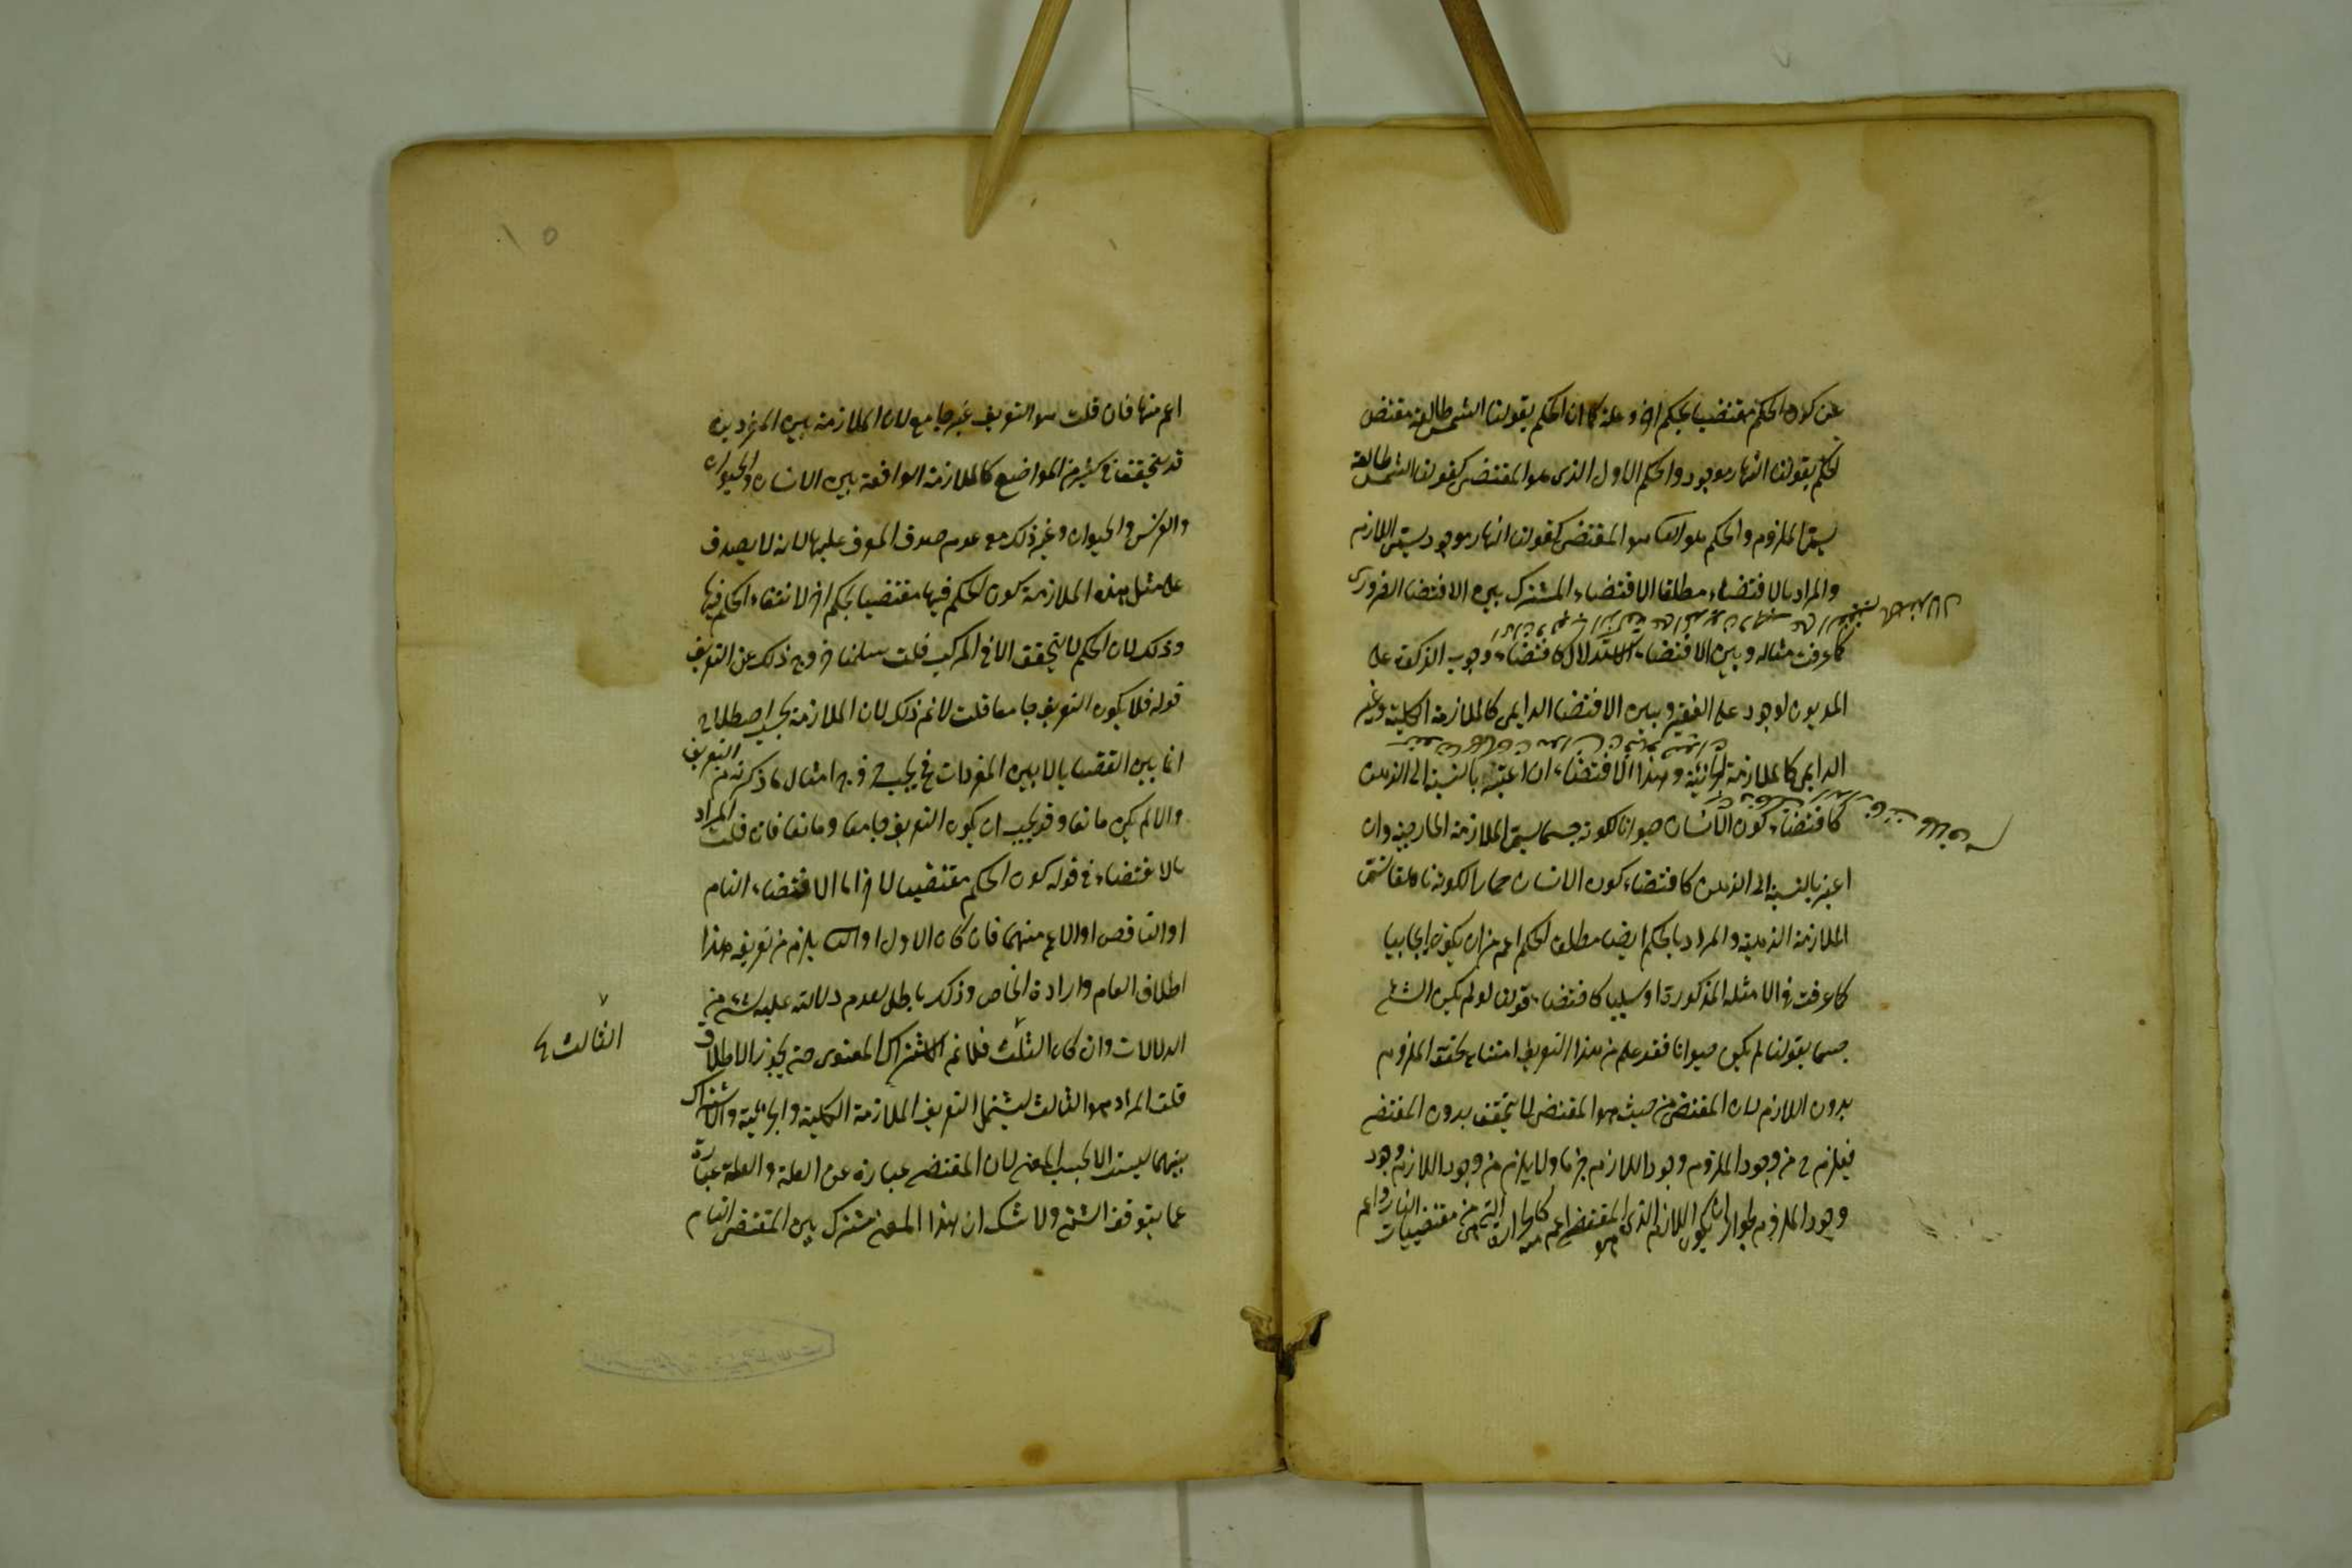 عن كون الحكم مقتضيا لحكم اخر وعلة كما ان الحكم بقولنا الشمس طالعة مقتض
لحكم بقولنا النهار موجود والحكم الاول الذى هو المقتضى كقولنا الشمس طالعة
يسمى الملزوم والحكم هو المقتضى كقولنا النهار موجود يسمى اللازم
والمراد بالاقتضاء مطلقا الاقتضاء المشترك بين الاقتضا الضرورى
كما عرفت مثاله وبين الاقتضاء الاستدلال كاقتضاء وجوب الزكوة على
المديون لوجود على الفقير وبين الاقتضا الدايمى كالملازمة الكلية وغير
الدايمى كالملازمة الجزئية وهذا الاقتضاء ان اعتبر بالنسبة الى الذهن
كاقتضاء كون الانسان حيوانا لكونه جسما يسمى الملازمة الخارجية وان
اعتبر بالنسبة الى الذهن كاقتضاء كون الانسان حمارا لكونه ناهقا تسمى
الملازمة الذهنية والمراد بالحكم ايضا مطلق الحكم اعم من ان يكون ايجابيا
كما عرفت فى الامثلة المذكورة او سلبيا كاقتضاء قولنا لو لم يكن الشئ
جسما بقولنا لم يكن حيوانا فقد علم من هذا التعريف امتناع تحقق الملزوم
بدون اللازم لان المقتضى من حيث هو المقتضى لا يتحقق بدون المقتضى
فيلزم ح من وجود الملزوم وجود اللازم جزما ولا يلزم من وجود اللازم وجود
وجود الملزوم لجواز ان يكون اللازم الذى هو المقتضى اعم منه كالحرارة التى هى من مقتضيات النار واعم
اعم منها فان قلت هو التعريف غير جامع لان الملازمة بين المفردين
قد يتحقق فى كثير من المواضع كالملازمة الواقعة بين الانسان والحيوان
والفرس والحيوان وغير ذلك مع عدم صدق المعرف عليها لانه لا يصدق
على مثل هذه الملازمة كون الحكم فيها مقتضيا لحكم اخر لانتفاء الحكم فيها
وذلك لان الحكم لا يتحقق الا فى المركب قلت سلمنا خروج ذلك عن التعريف
قوله فلا يكون التعريف جامعا قلت لا نم ذلك لان الملازمة بحسب اصطلاح
انما بين القضايا لا بين المفردات فح يجب خروج امثال ما ذكرته من التعريف
والا لم يكن مانعا وقد يجب ان يكون التعريف جامعا ومانعا فان قلت المراد
بالاقتضاء فى قوله كون الحكم مقتضيا لاخر اما الاقتضاء التام
او الناقص او الاعم منهما فان كان الاول او يلزم من تعريفه هذا
اطلاق العام وارادة الخاص وذلك باطل لعدم دلالته عليه بشئ من
الدلالات وان كان الثلث فلا نم الاشتراك المعنوى حتى يجوز الاطلاق
الثالث
قلت المراد هو الثالث ليشتمل التعريف الملازمة الكلية والجزئية والاشتراك
بينهما ليست الا بحسب المعنى لان المقتضى عبارة عن العلة والعلة عبارة
عما يتوقف الشئ ولا شك ان هذا المعنى مشترك بين المقتضى التام
١٥